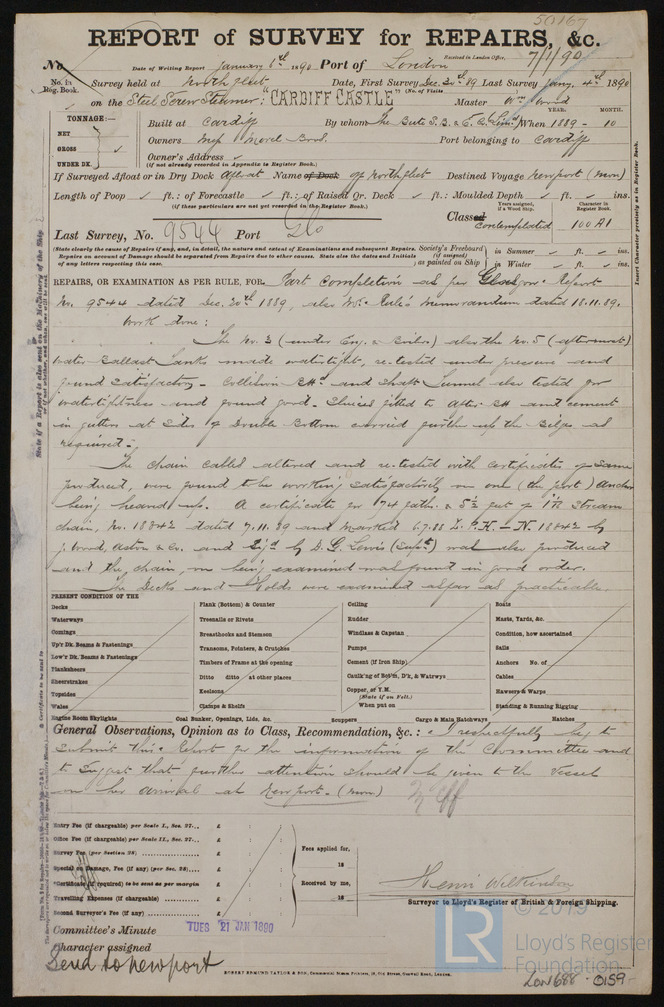 50167
REPORT of SURVEY for REPAIRS, &c.
Received in London Office, 7/1/90
No. Date of Writing Report January 6th 1890 Port of London
No. in Reg. Book. Survey held at Northfleet Date, First Survey Dec. 30th 89 Last Survey Jany. 4th 1890
(No. of Visits
on the Steel Screw Steamer: "CARDIFF CASTLE" Master Wm Wood
YEAR. MONTH.
TONNAGE:— Built at Cardiff By whom The Bute S.B. & E. Co. Limd When 1889 - 10
NET
GROSS Owners Morel Bros. Port belonging to Cardiff
UNDER DK. Owner's Address
(if not already recorded in Appendix to Register Book.)
If Surveyed Afloat or in Dry Dock Afloat Name of Dock off Northfleet Destined Voyage Newport (Mon)
Length of Poop ft.: of Forecastle ft.: of Raised Qr. Deck ft.: Moulded Depth ft. ins.
(if these particulars are not yet recorded in the Register Book.)
Years assigned, if a Wood Ship. Character in Register Book.
Last Survey, No. 9544 Port Gls Classed Contemplated 100 A1
(State clearly the cause of Repairs if any, and, in detail, the nature and extent of Examinations and subsequent Repairs.
Repairs on account of Damage should be separated from Repairs due to other causes. State also the dates and initials
of any letters respecting this case.
Society's Freeboard (if assigned) as painted on Ship in Summer ft. ins.
in Winter ft. ins.
REPAIRS, OR EXAMINATION AS PER RULE, FOR, Part Completion as per Glasgow Report
No. 9544 dated Dec. 20th 1889, also Mr. Memorandum dated 18.11.89.
Work done:
The No. 3 (under Eng. & Boiler) also the No. 5 (aftermost)
Water Ballast Tanks made watertight, re-tested under pressure and
found satisfactory - Collision BHd and Shaft Tunnel also tested for
watertightness and found good. Sluices fitted to After BH and cement
in gutters at sides of Double Bottom carried further up the Bilge as
required.
The chain cables altered and re-tested with certificates of same
produced, were found to be working satisfactorily on one (the port) Anchor
being heaved up. A certificate for 74 faths. & 5½ feet of Stream
chain, No. 18842 dated 7.11.89 and marked 6.7.88 L.P.H. - N. 18842 by
J. Wood, Aston & Co. and Sigd by D. G. Lewis (Supt) was also produced
and the chain, on being examined was found in good order.
The Decks and Holds were examined as far as practicable.
PRESENT CONDITION OF THE
Decks
Waterways
Comings
Up'r Dk. Beams & Fastenings
Low'r Dk. Beams & Fastenings
Planksheers
Sheerstrakes
Topsides
Wales
Engine Room Skylights
Plank (Bottom) & Counter
Treenails or Rivets
Breasthooks and Stemson
Transoms, Pointers, & Crutches
Timbers of Frame at the opening
Ditto ditto at other places
Keelsons
Clamps & Shelfs
Coal Bunker, Openings, Lids, &c.
Ceiling
Rudder
Windlass & Capstan
Pumps
Cement (if Iron Ship)
Caulk'ng of Bot'm, D'k, & Watrwys
Copper, or Y.M.
(State if on Felt.)
When put on
Scuppers
Cargo & Main Hatchways
Boats
Masts, Yards, &c.
Condition, how ascertained
Sails
Anchors No. of
Cables
Hawsers & Warps
Standing & Running Rigging
Hatches
General Observations, Opinion as to Class, Recommendation, &c.: I respectfully beg to
submit this Report for the information of the Committee and
to suggest that further attention should be given to the Vessel
on her arrival at Newport. (Mon.)
Entry Fee (if chargeable) per Scale I., Sec. 27... £ : :
Office Fee (if chargeable) per Scale II., Sec. 27... £ : :
Survey Fee (per Section 28) £ : :
Special or Damage, Fee (if any) (per Sec. 28) £ : :
Certificate (if required) to be sent as per margin
Travelling Expenses (if chargeable) £ : :
Second Surveyor's Fee (if any) £ : :
Fees applied for,
18
Received by me,
18
Henri Wilkinson
Surveyor to Lloyd's Register of British & Foreign Shipping.
Committee's Minute TUES 21 JAN 1890
Character assigned
Send to Newport
ROBERT EDMUND TAYLOR & SON, Commercial Steam Printers, 19, Old Street, Goswell Road, London.
© 2019
LR
Lloyd's Register
Foundation
LON 688-0159
Insert Character precisely as in Register Book.
State if a Report is also sent on the Machinery of the Ship